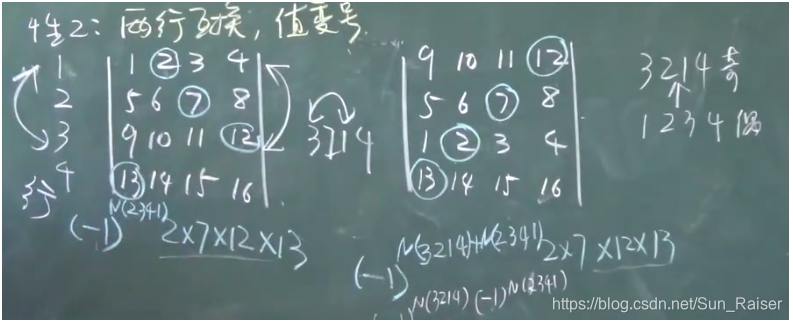 性2: 两行互换, 值变号.
1 | 1 2 3 4 |
2 | 5 6 7 8 |
3 | 9 10 11 12 |
4 | 13 14 15 16 |
行
3214
(-1)^N(2341) 2×7×12×13
| 9 10 11 12 |
| 5 6 7 8 |
| 1 2 3 4 |
| 13 14 15 16 |
3214 奇
1234 偶
(-1)^N(3214)+N(2341) 2×7×12×13
N(3214) (-1)^N(2341)
https://blog.csdn.net/Sun_Raiser